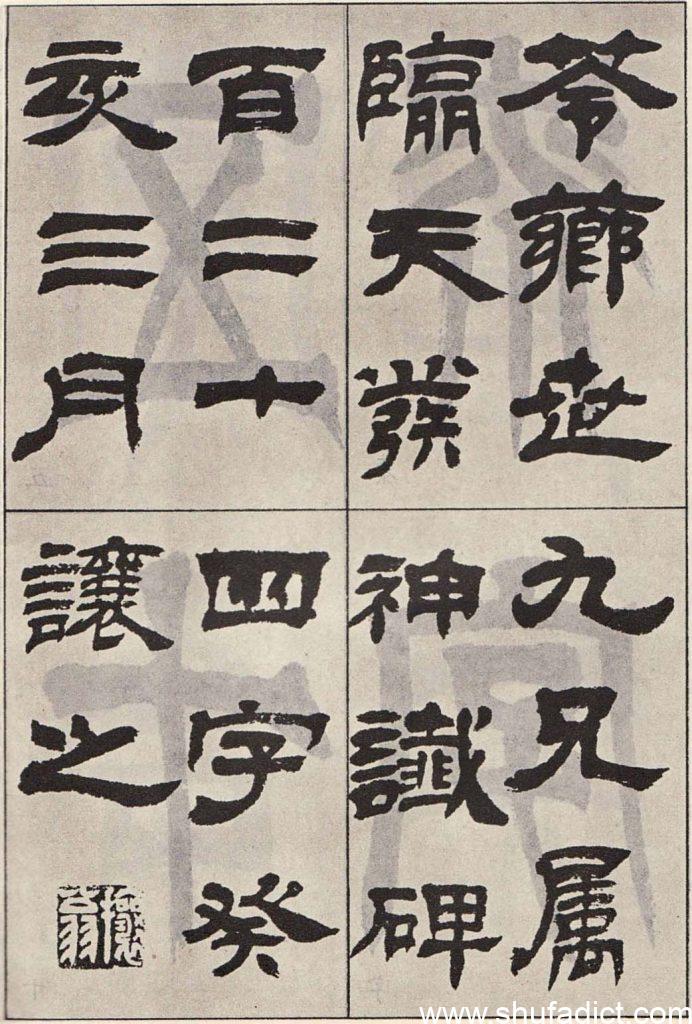 苓薌世九兄属
臨天發神讖碑
百二十四字癸
亥三月讓之
攘翁
www.shufadict.com